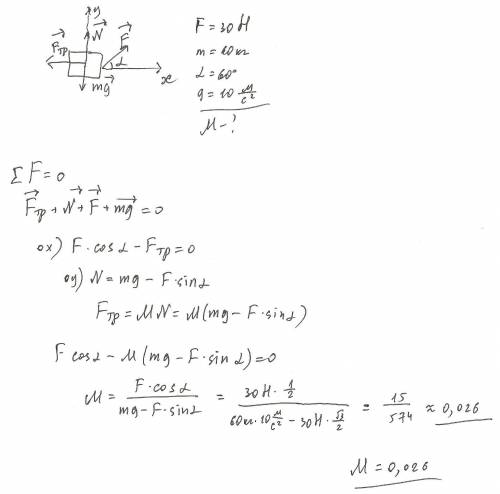 y
N
F
Fтр
α
x
mg
F = 30 Н
m = 60 кг
α = 60°
g = 10 м/с²
μ - ?
Σ F = 0
Fтр + N + F + mg = 0
ox) F · cos α - Fтр = 0
oy) N = mg - F · sin α
Fтр = μN = μ(mg - F · sin α)
F cos α - μ(mg - F · sin α) = 0
μ = F · cos α / mg - F · sin α = 30 Н · 1/2 / 60 кг · 10 м/с² - 30 Н · √3/2 = 15/574 ≈ 0,026
μ = 0,026